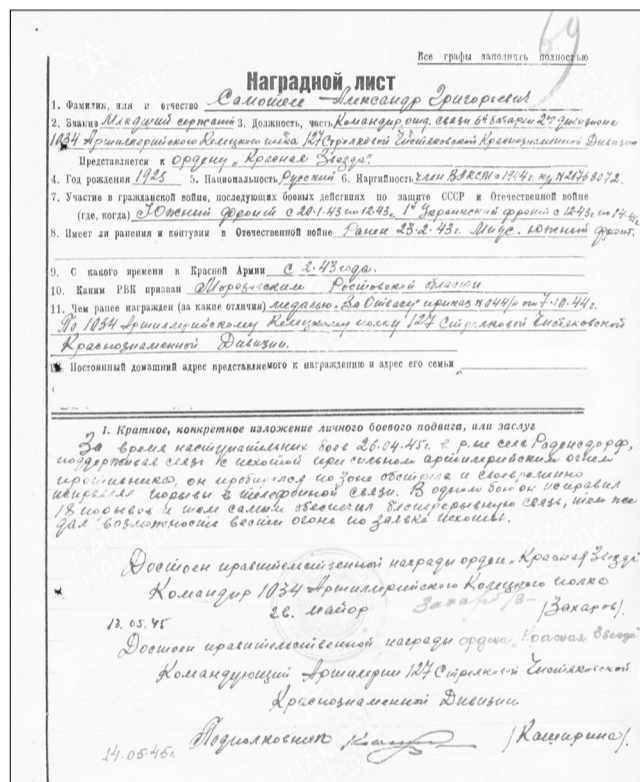 69
Все графы заполнять полностью
Наградной лист
1. Фамилия, имя и отчество Александр Григорьевич
2. Звание Младший сержант 3. Должность, часть Командир отд. связи 6й батареи 2го дивизиона
1034 Артиллерийского Келецкого полка 127 Стрелковой Чистяковской Краснознаменной Дивизии
Представляется к ордену „Красная Звезда"
4. Год рождения 1925 5. Национальность Русский 6. Партийность член ВЛКСМ с
7. Участие в гражданской войне, последующих боевых действиях по защите СССР и Отечественной войне
(где, когда) Южный фронт с 1й Украинский фронт с
8. Имеет ли ранения и контузии в Отечественной войне Ранен 23.2.43г. Миус. Южный фронт.
9. С какого времени в Красной Армии с 2.43 года.
10. Каким РВК призван Морозовским Ростовской области
11. Чем ранее награжден (за какие отличия) медалью „За Отвагу" приказ №044/н от 7.10.44г.
По 1034 Артиллерийскому Келецкому полку 127 Стрелковой Чистяковской
Краснознаменной Дивизии.
Постоянный домашний адрес представляемого к награждению и адрес его семьи
1. Краткое, конкретное изложение личного боевого подвига, или заслуг
За время наступательных боев 26.04.45г. в р-не села Раденсдорф,
поддерживая связь с пехотой при сильном артиллерийском огнем
противника, он пробирался по зоне обстрела и своевременно
исправлял порывы в телефонной связи. В одном бою он исправил
18 порывов и тем самым обеспечил бесперерывную связь, тем же
дал возможность вести огонь по заявке пехоты.
Достоен правительственной награды орден „Красная Звезда"
Командир 1034 Артиллерийского Келецкого полка
гв. майор /Захаров/.
13.05.45
Достоен правительственной награды ордена „Красная Звезда"
Командующий Артилерии 127 Стрелковой Чистяковской
Краснознаменной Дивизии
Подполковник /Каширина/
14.05.45г.